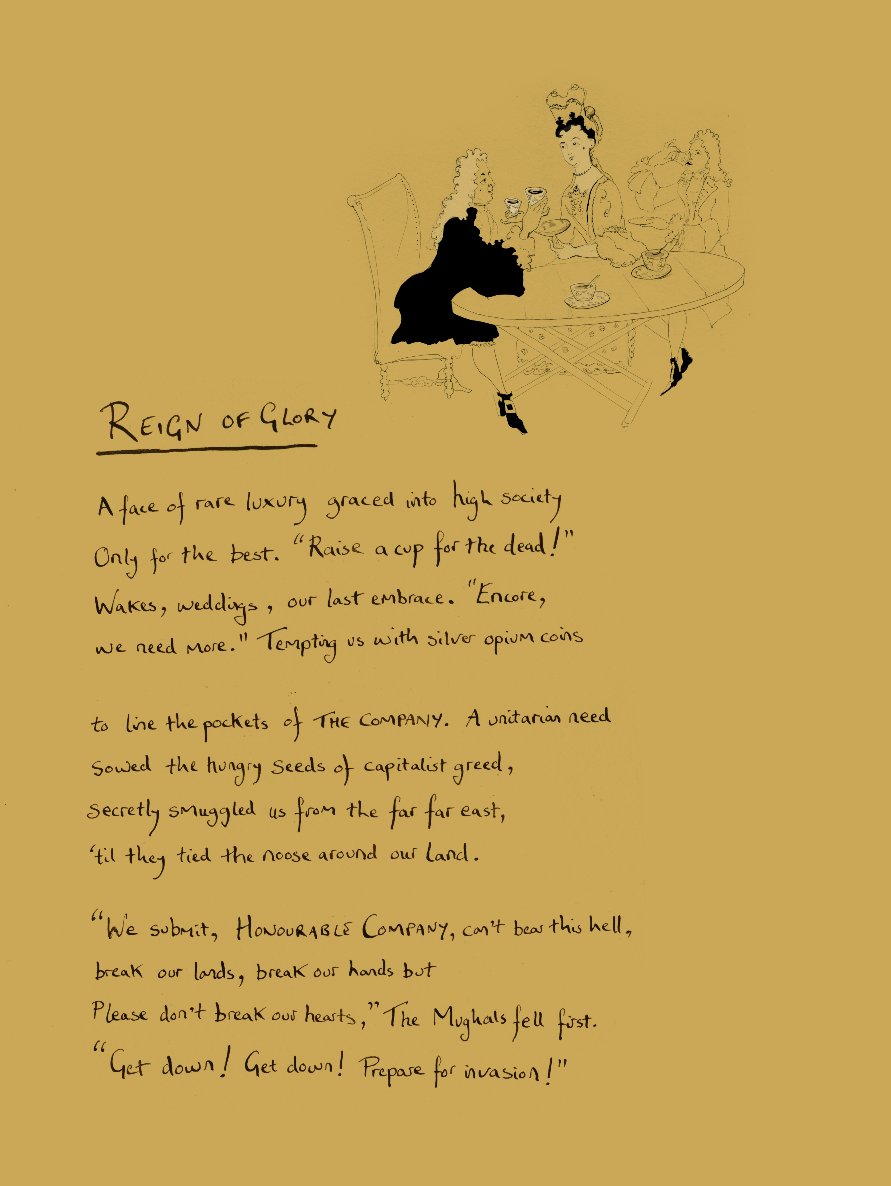 REIGN OF GLORY
A face of rare luxury graced into high society
Only for the best. "Raise a cup for the dead!"
Wakes, weddings, our last embrace. "Encore,
we need more." Tempting us with silver opium coins
to line the pockets of THE COMPANY. A unitarian need
Sowed the hungry seeds of capitalist greed,
secretly smuggled us from the far far east,
'til they tied the noose around our land.
"We submit, HONOURABLE COMPANY, can't bear this hell,
break our lands, break our hands but
Please don't break our hearts," The Mughals fell first.
"Get down! Get down! Prepare for invasion!"